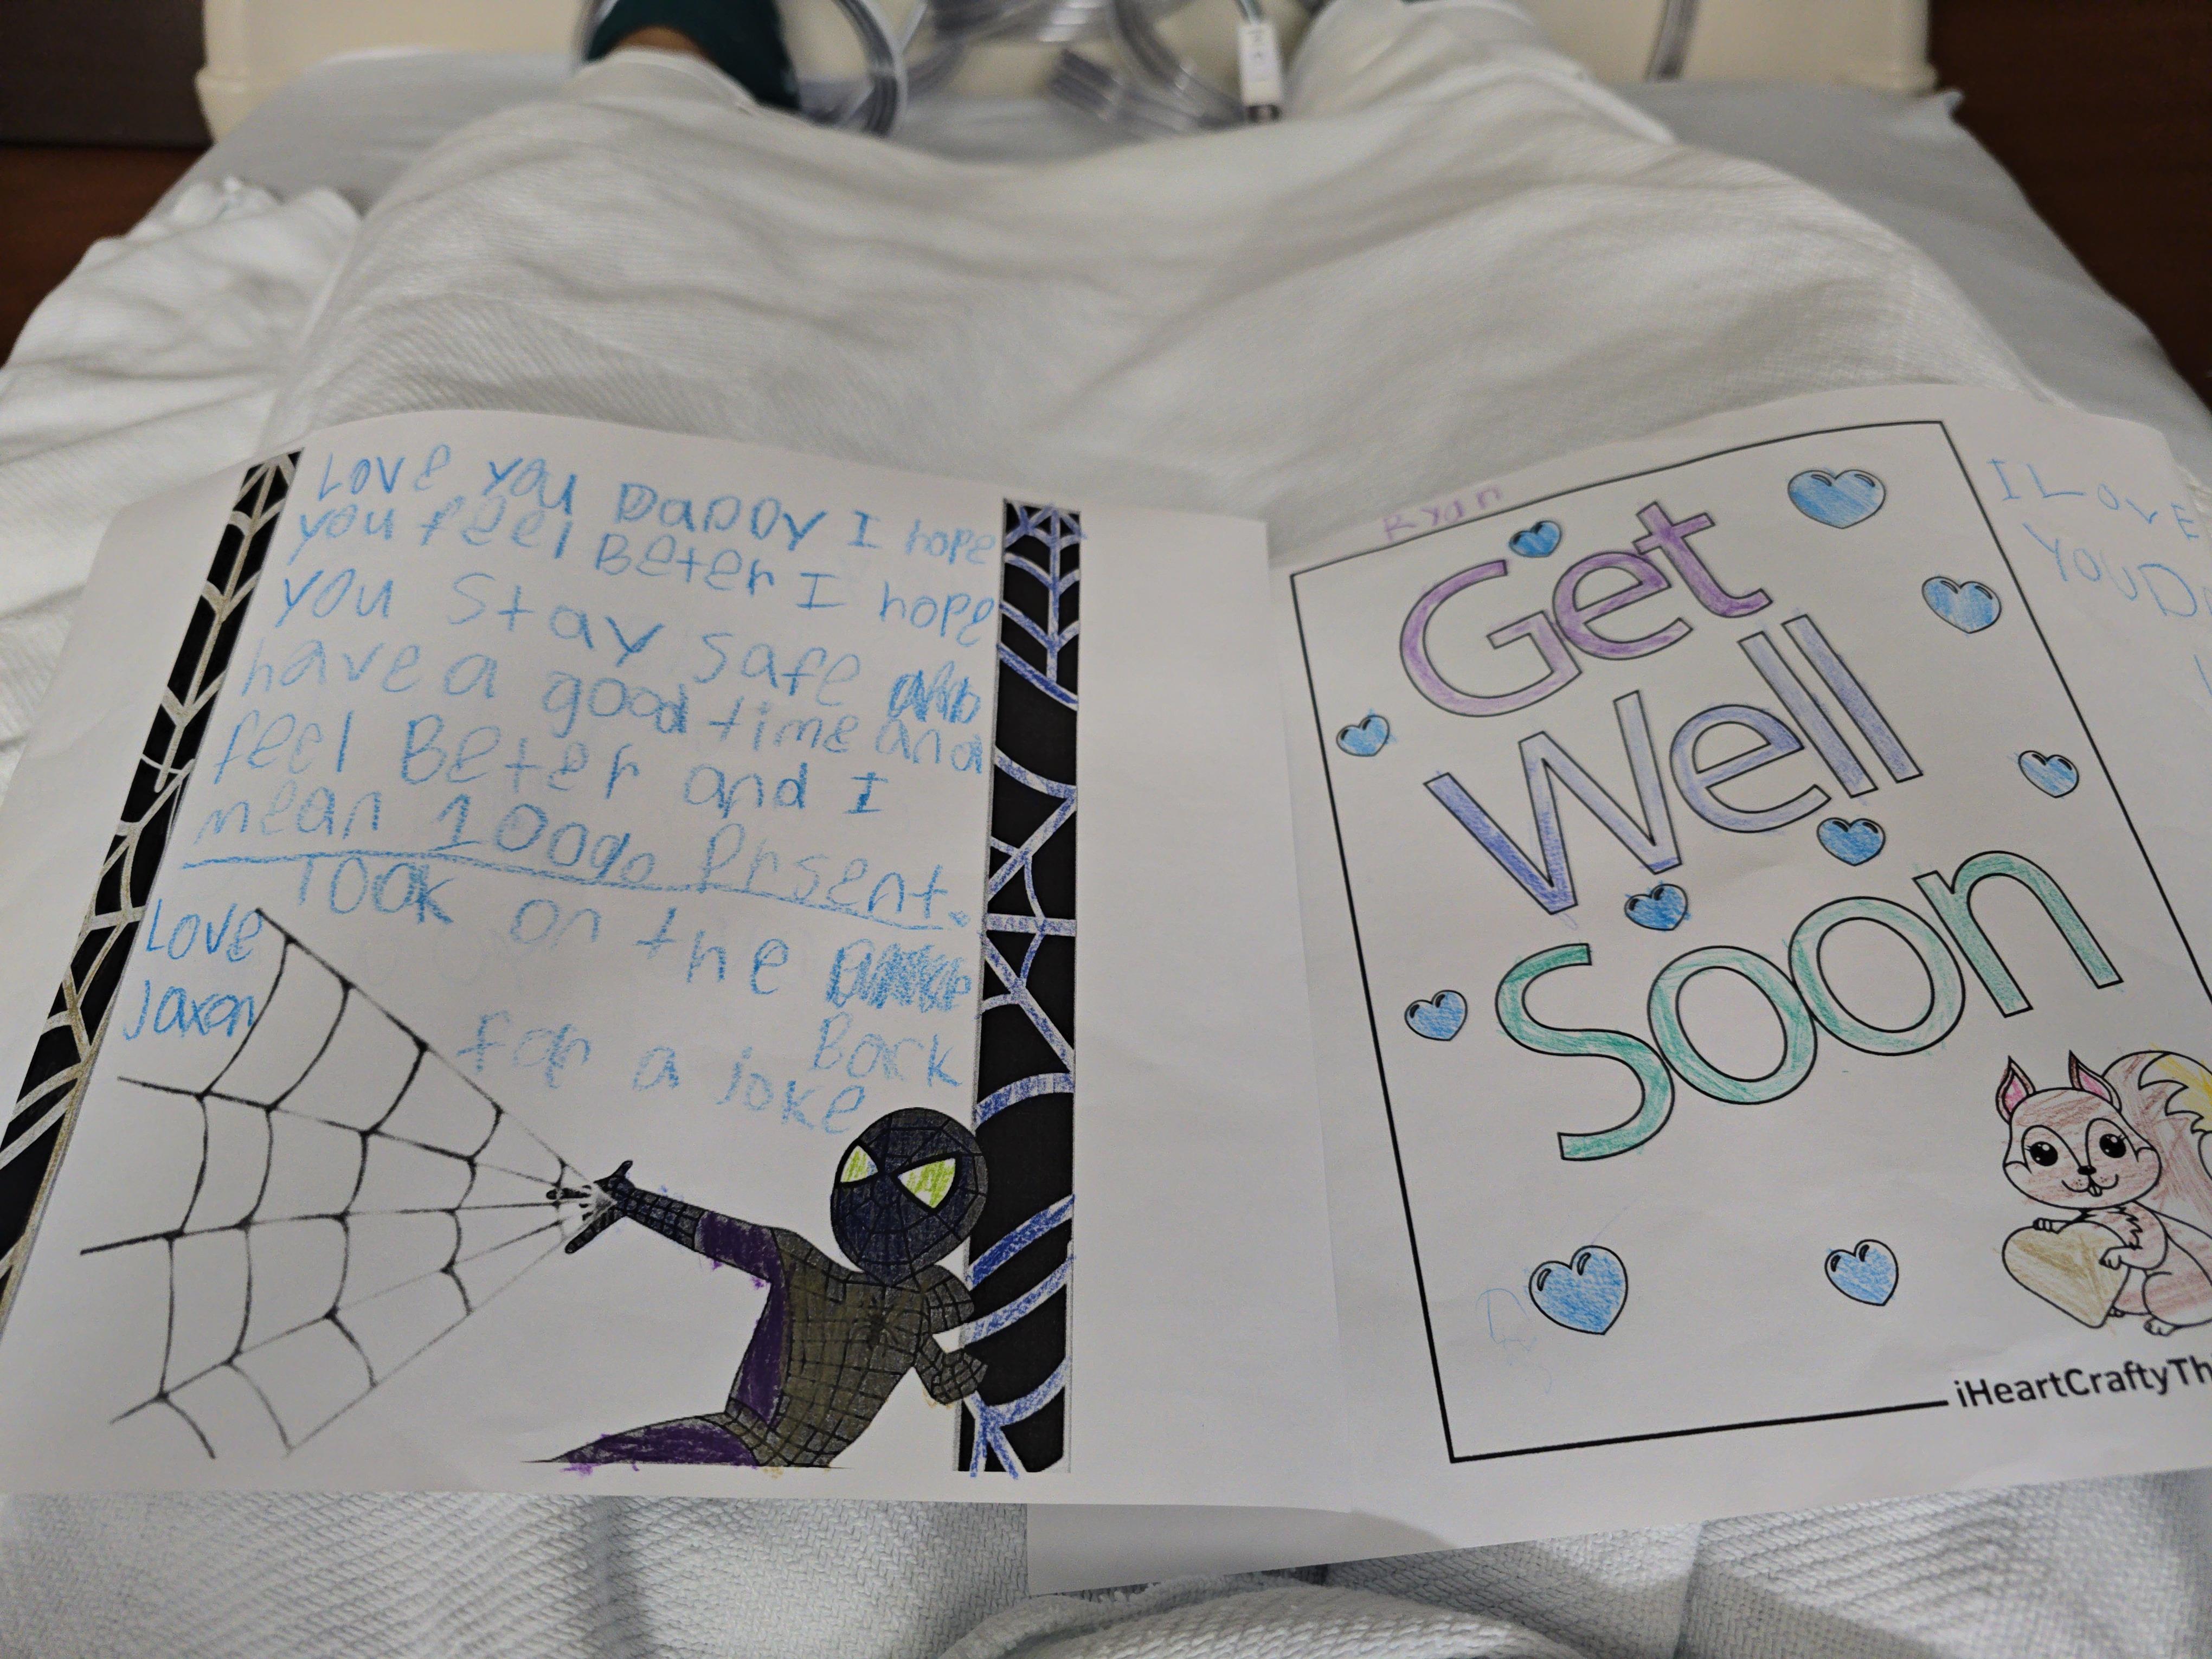 Love you Daddy I hope
you feel Beter I hope
you Stay safe
have a good time and
feel Beter and I
mean 100% Prsent.
Took on the
Back
for a joke
Love
Jaxon
Ryan
Get
Well
Soon
I Love
You
iHeartCraftyTh